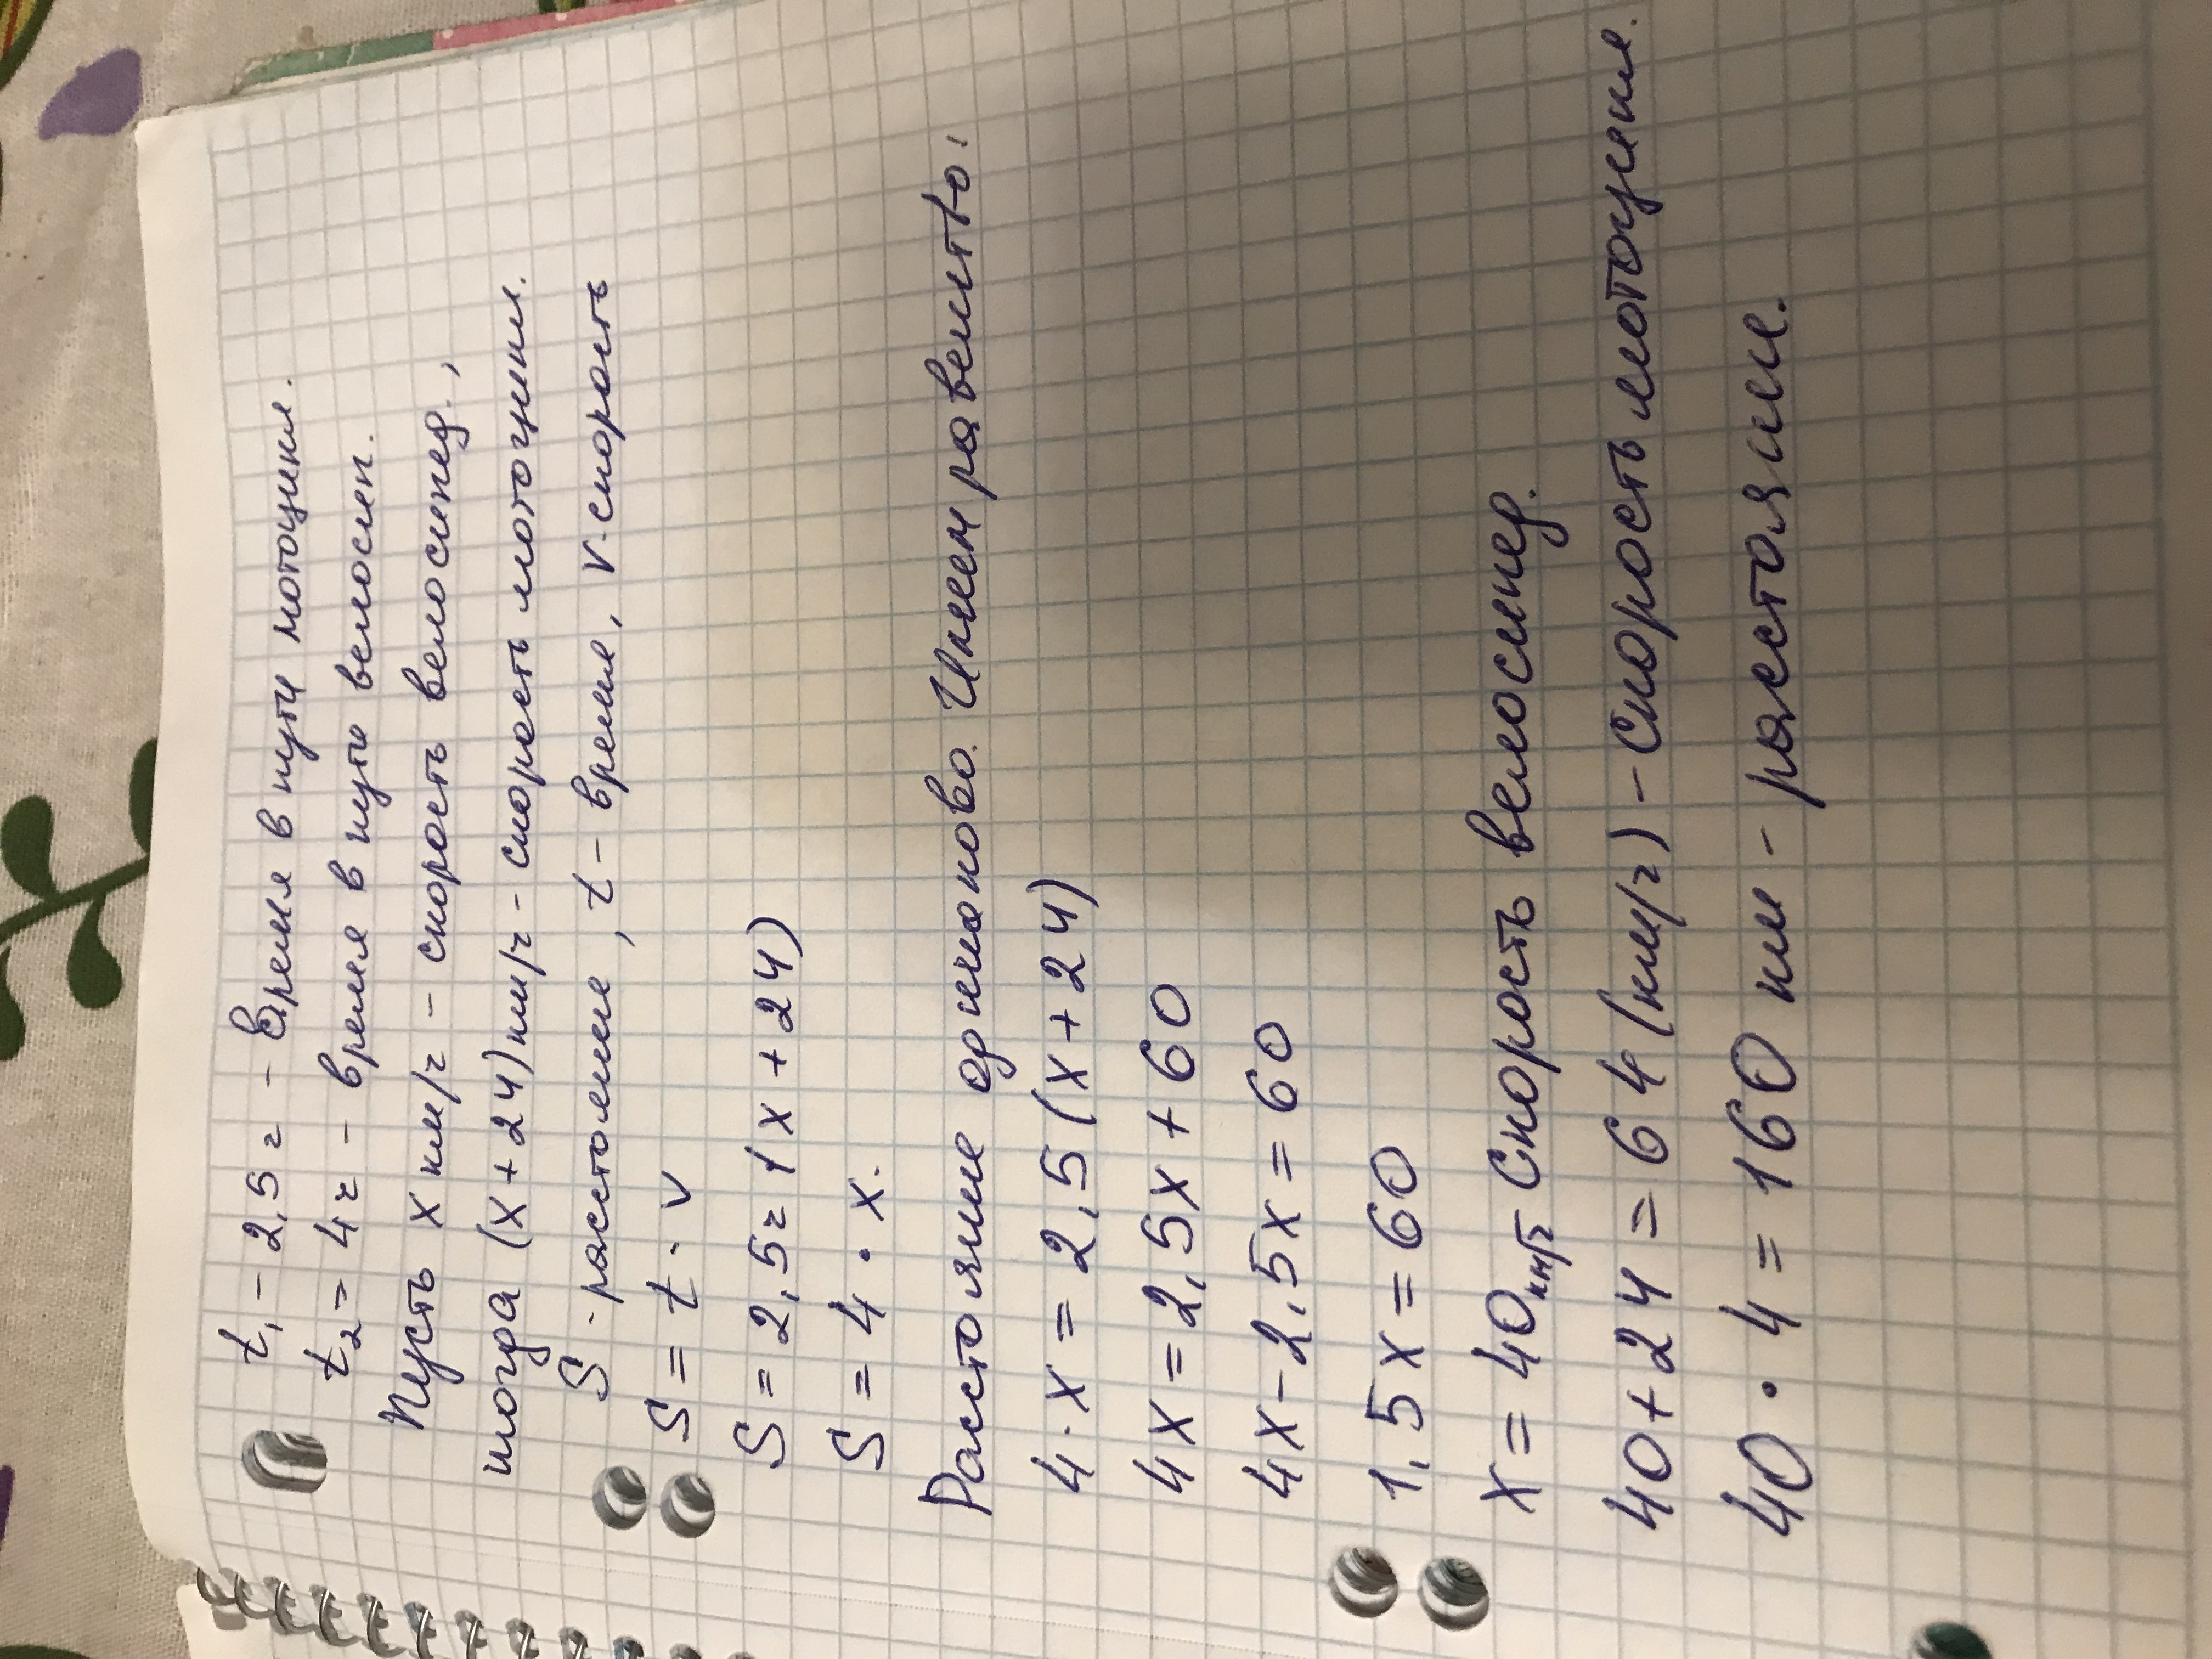 t₁ – 2,5 ч – Время в пути мотоцикл.
t₂ = 4 ч – время в пути велосип.
Пусть х км/ч – скорость велосипед.,
тогда (х + 24) км/ч – скорость мотоцикл.
S - растояние, t – время, V - скорость
S = t · V
S = 2,5 ч (х + 24)
S = 4 · х.
Растояние одинаково. Имеем равенство:
4 · х = 2,5 (х + 24)
4х = 2,5х + 60
4х – 2,5х = 60
1,5х = 60
х = 40 км/ч Скорость велосипед.
40 + 24 = 64 (км/ч) – Скорость мотоцикл.
40 · 4 = 160 км – растояние.